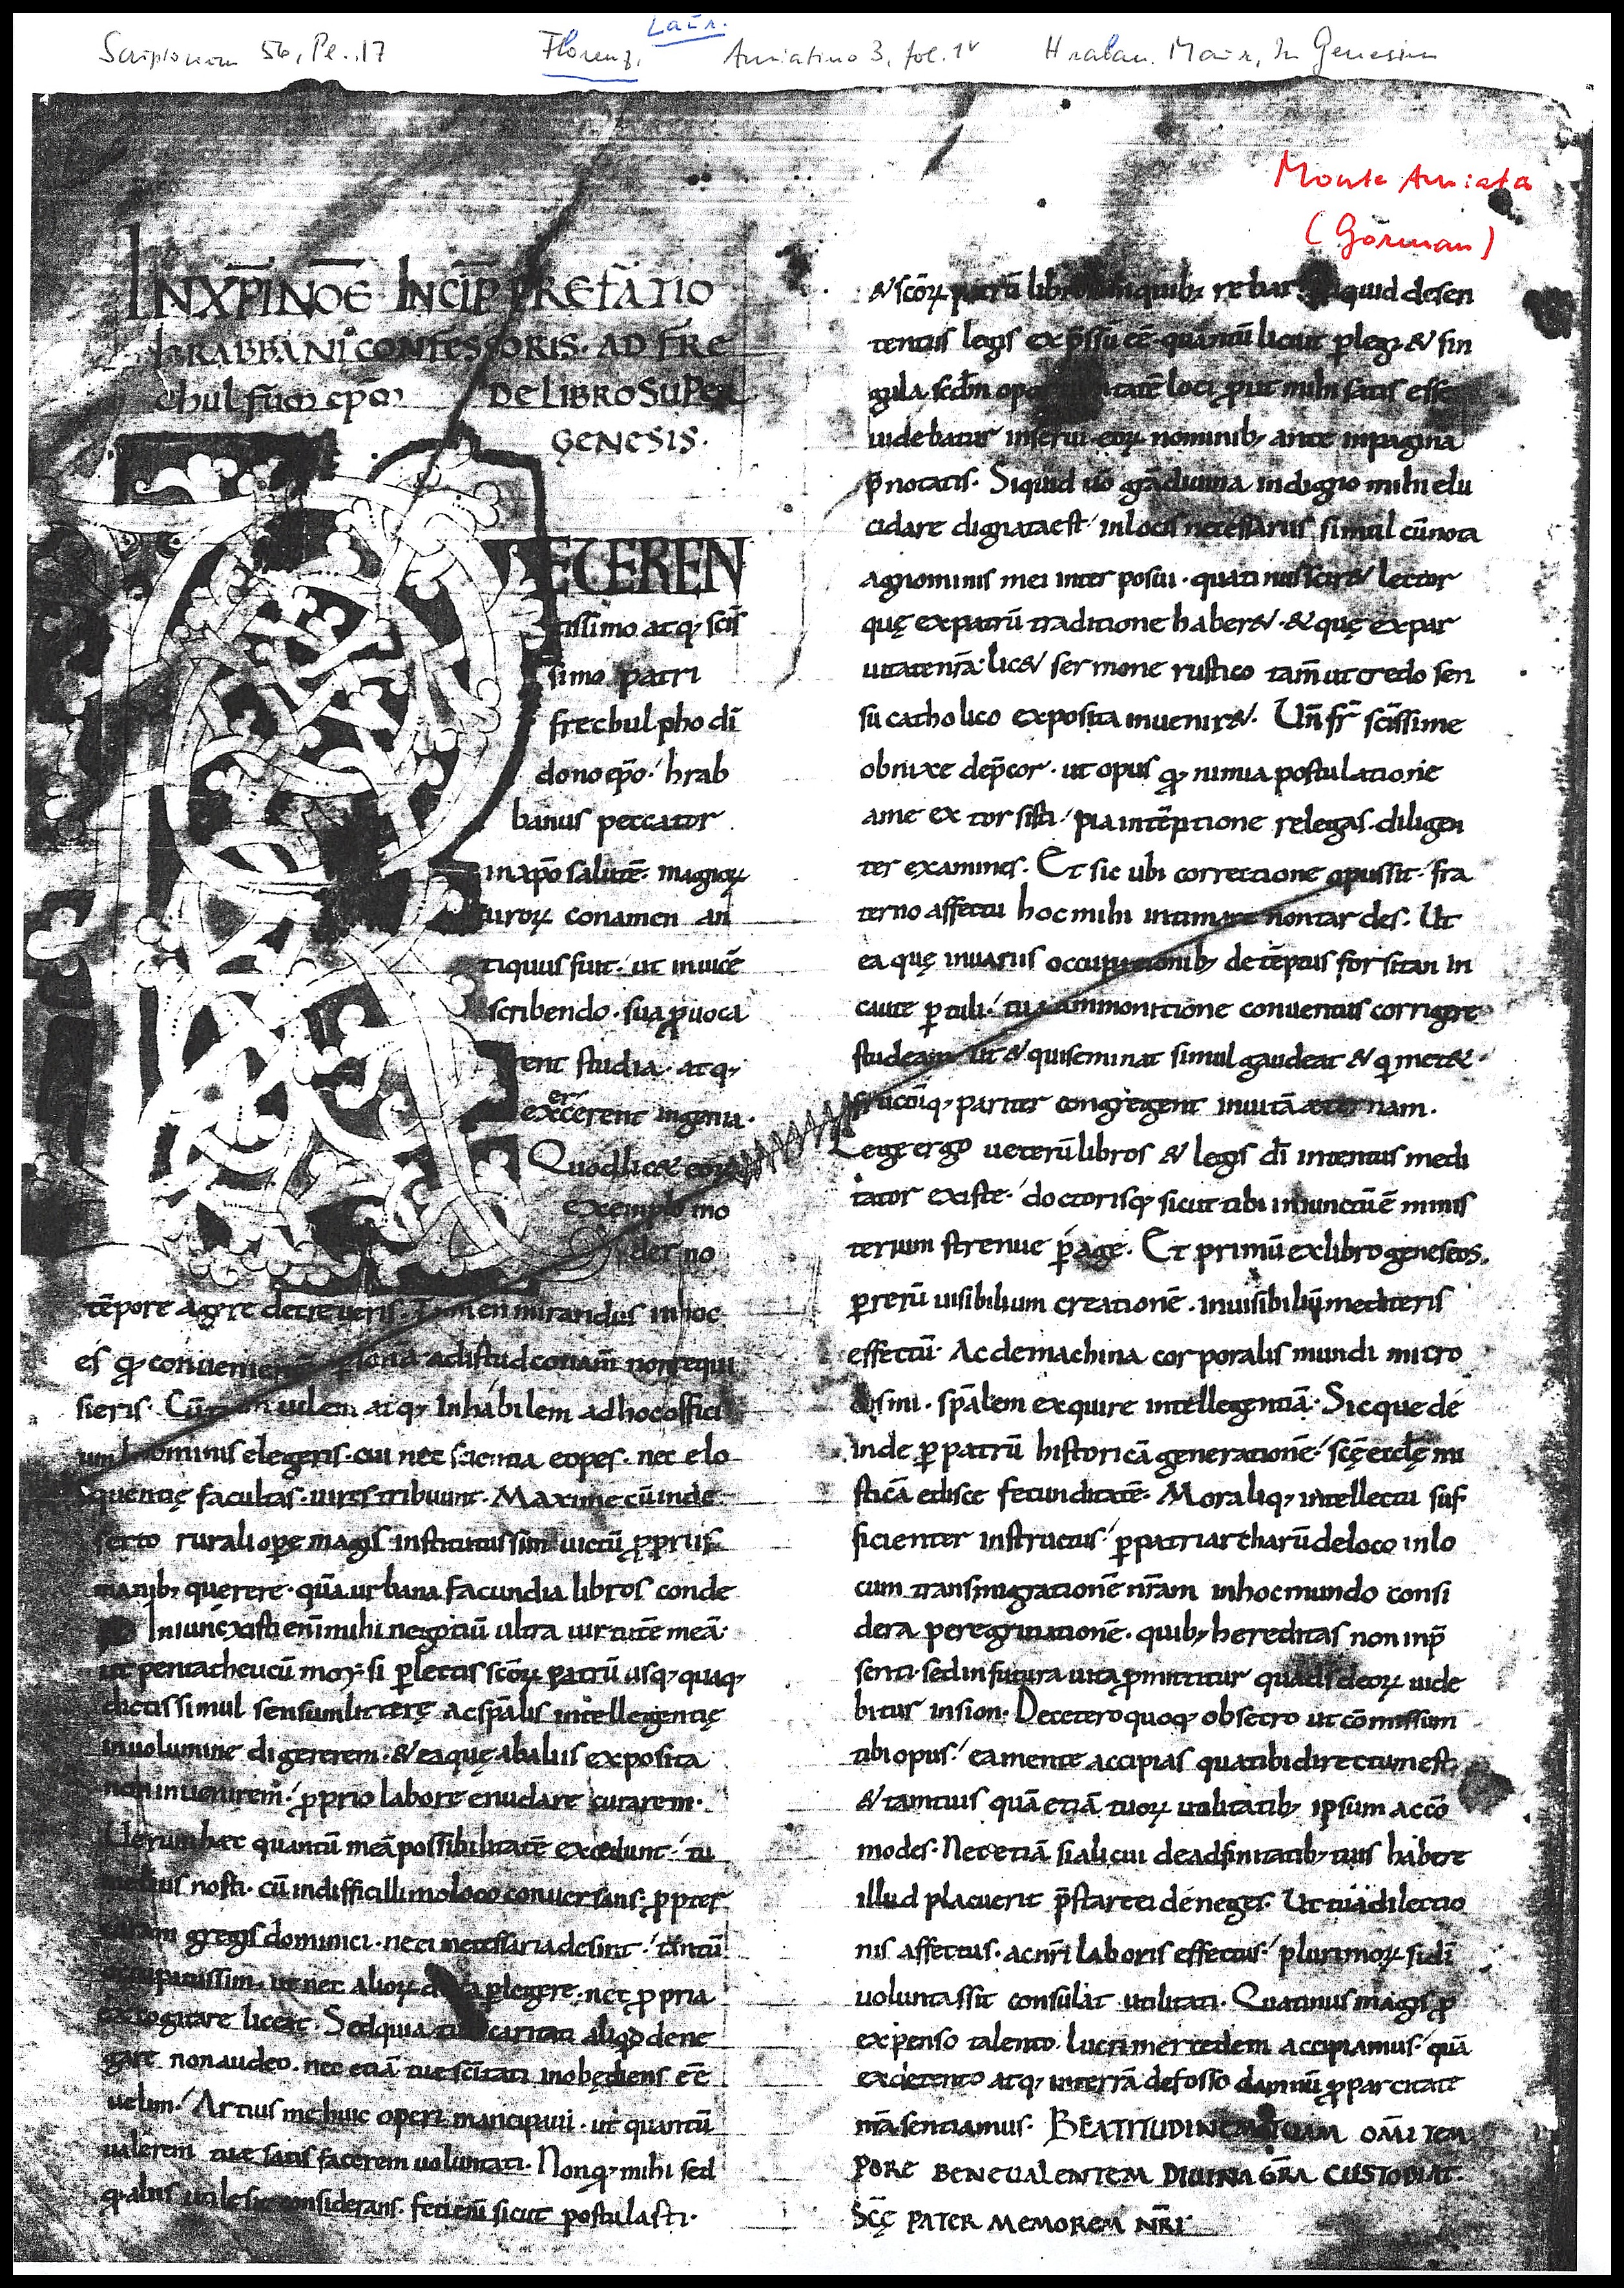 Scriptorium 56, Pl. 17 Florenz, Laur. Amiatino 3, fol. 1v Hraban. Maur, In Genesim
Monte Amiata
(Gorman)
INXPĪNOE INCIP PREFATIO
hRABBANI CONFESSORIS· AD FRE
chulfum ep̄m DE LIBRO SUPER
GENESIS·
REVEREN
tissimo atq; scīs
simo patri
frechulpho dī
dono ep̄o· hrab
banus peccator
in xp̄o salutē· magnoꝝ
uiroꝝ conamen an
tiquus fuit· ut inuicē
scribendo· sua ꝓuoca
rent studia· atq;
excerent ingenia·
er
Quod licet eoꝝ
exemplo mo
derno
tēpore agere decreueris· Tamen mirandus in hoc
es qđ conueniente ad istud conam̄ non requi
sieris· Cū uilem atq; inhabilem ad hoc offici
um hominis elegeris· cui nec scientia eopes· nec elo
quentię facultas· uires tribuunt· Maxime cū inde
serto rurali opere magis institutus sim uictū ꝓpriis
manib; querere· quā urbana facundia libros conde
Iniunxisti enī mihi negotiū ultra uirtutē meā·
ut pentatheucū moy̅si ꝑlectis scōꝝ patrū usq; quaq;
dictis simul sensum litterę ac spālis intellegentię
in uolumine digererem· & ea quę ab aliis exposita
non inuenirem· ꝓprio labore enudare curarem·
Uerum hęc quantū meā possibilitatē excedunt· tu
melius nosti· cū in difficillimo loco conuersans· ꝓpter
curam gregis dominici· ne ei necessaria desint· tantū
occupatus sim· ut nec alioꝝ dicta ꝑlegere· nec ꝓpria
excogitare liceat· Sed quia tuę caritati aliqđ dene
gare non audeo· nec etiā tuę scītati inobędiens eē
uelim· Artius me huic operi mancipaui· ut quantū
ualerem tuę satis facerem uoluntati· Non qđ mihi sed
qđ aliis utile sit considerans· feci enī sicut postulasti·
& scōꝝ patrū libros in quib; rebar aliquid de sen
tentiis legis exp̄ssū eē· quantū licuit ꝑlegi & sin
gula sedm̄ oportunitatē loci ꝓut mihi satis esse
uidebatur inserui· eoꝝ nominib; ante in pagina
p̄notatis· Siquid uō grā diuina indigno mihi elu
cidare dignata est· in locis necessariis simul cū nota
agnominis mei interposui· quatinus sciret lector
quę ex patrū traditione haberet· & quę ex par
uitate nr̄a· licet sermone rustico tam̄ ut credo sen
su catholico exposita inueniret· Un̄ fr̄ scīssime
obnixe dep̄cor· ut opus qđ nimia postulatione
a me extorsisti· pia intentione relegas· diligen
ter examines· Et sic ubi correctione opus sit· fra
terno affectu hoc mihi intimare non tardes· Ut
ea quę in uariis occupationib; detēptus forsitan in
caute ꝓtuli· tua ammonitione conuentus corrigere
studeam· ut & qui seminat simul gaudeat & q' metet·
fructūq; pariter congregent in uitā æternam·
Lege ergo ueterū libros & legis dī intentus medi
tator existe· doctorisq; sicut tibi iniunctū ē minis
terium strenue ꝑage· Et primū ex libro geneseos,
ꝑ rerū uisibilium creationē· inuisibiliū mediteris
effectū· Ac de machina corporalis mundi micro
cosmi· spālem exquire intellegentiā· Sicque de
inde ꝑ patrū historicā generationē· scę̄ eccl̄ę mi
sticā edisce fecunditatē· Moraliq; intellectu suf
ficienter instructus· ꝑ patriarcharū de loco in lo
cum transmigrationē nr̄am in hoc mundo consi
dera peregrinationē· quib; hereditas non inp̄
senti· sed in futura uita ꝓmittitur qua dīs deoꝝ uide
bitur in sion· De cetero quoq; obsecro ut cōmissum
tibi opus· ea mente accipias qua tibi directum est,
& tam tuis quā etiā tuoꝝ utilitatib; ipsum accō
modes· Nec etiā si alicui de adfinitatib; tuis habere
illud placuerit p̄stare ei deneges· Ut tuę dilectio
nis affectus· ac nr̄i laboris effectus· plurimoꝝ si dī
uoluntas sit consulat utilitati· Quatinus magis ꝓ
expenso talento lucri mercedem accipiamus· quā
ex detento atq; in terrā defosso damnū ꝓ parcitate
nr̄a sentiamus· BEATITUDINEM TUAM OMI TEM
PORE BENEUALENTEM DIUINA GRA CUSTODIAT·
SCE PATER MEMOREM NRI